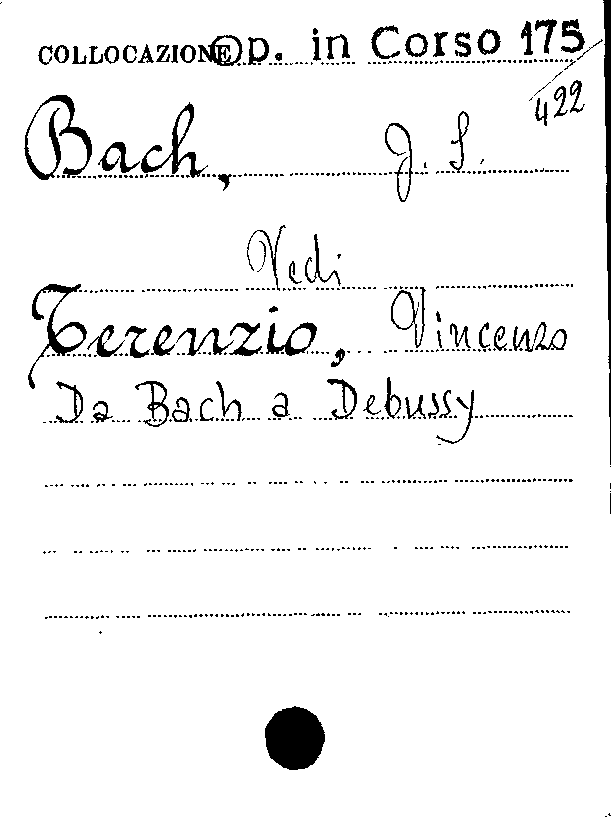 COLLOCAZIONE Op. in Corso 175/422
Bach, J. S.
Vedi
Terenzio, Vincenzo
Da Bach a Debussy